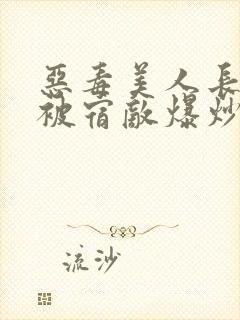 惡毒美人長
被宿敵爆炒
流沙